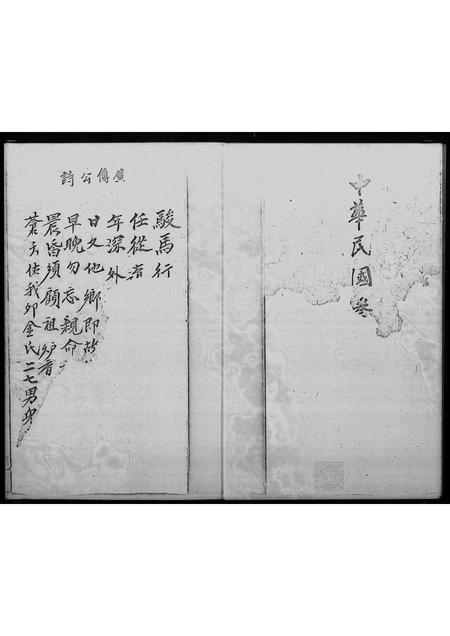 中華民國叁
廣傳公詩
駿馬行
任從有
年深外
日久他鄉即故
早晚勿忘親命
晨昏須顧祖炉香
蒼天佑我卯金氏二七男